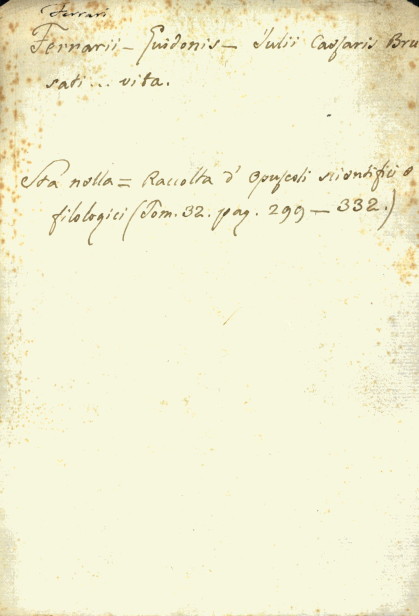 Ferrari
Fernarii - Guidonis - Julii Caesaris Bru
sati... vita.
Sta nella = Raccolta d' opuscoli scientifici e
filologici (Tom. 32. pag. 299 - 332.)